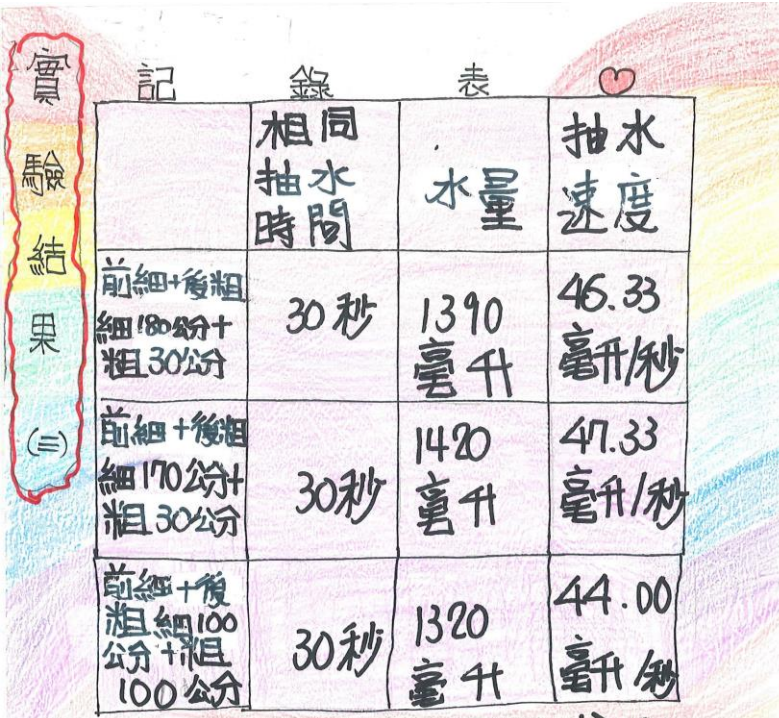 實驗結果(三)
記錄表
相同
抽水
時間
水量
抽水
速度
前細+後粗
細180公分+
粗30公分
30秒
1390
毫升
46.33
毫升/秒
前細+後粗
細170公分+
粗30公分
30秒
1420
毫升
47.33
毫升/秒
前細+後
粗細100
公分+粗
100公分
30秒
1320
毫升
44.00
毫升/秒